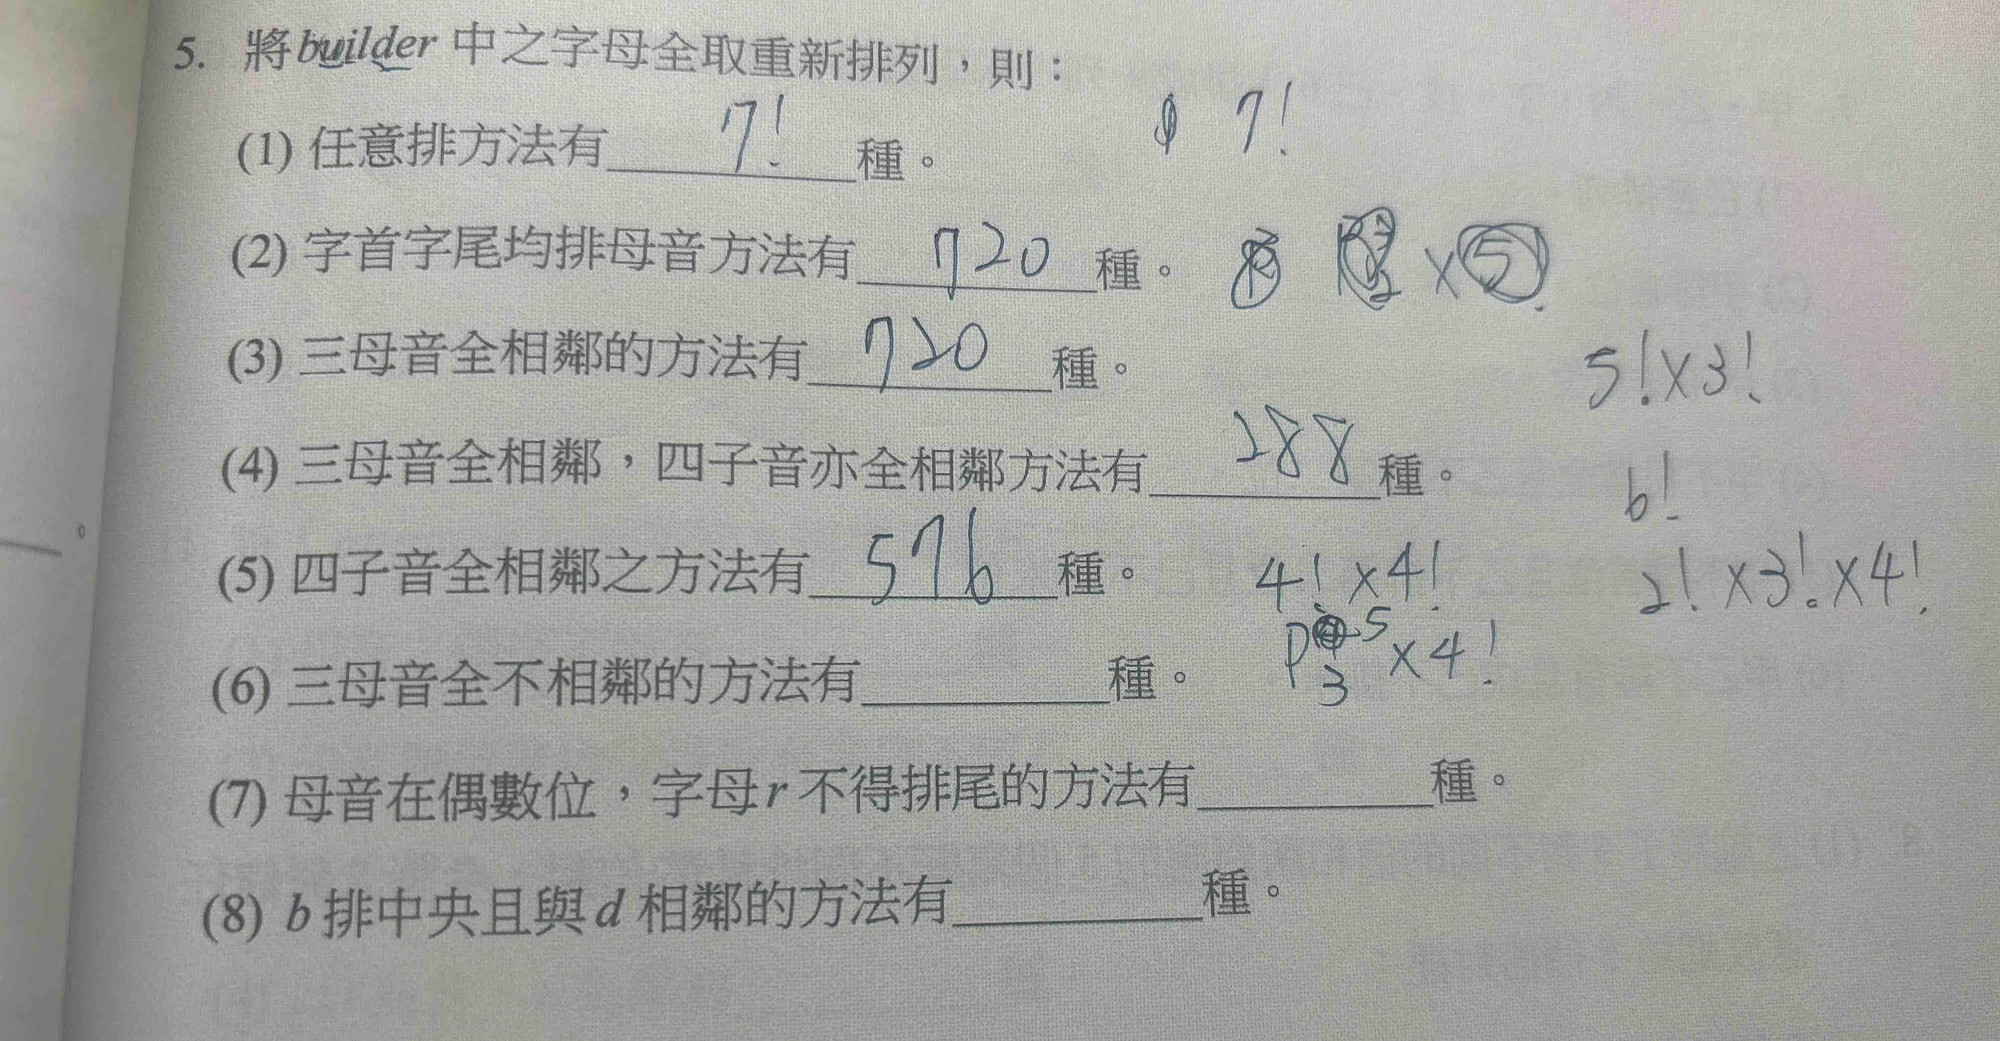 5. 將builder 中之字母全取重新排列，則：
(1) 任意排方法有 7! 種。 7!
(2) 字首字尾均排母音方法有 720 種。 ×5
(3) 三母音全相鄰的方法有 720 種。 5!×3!
(4) 三母音全相鄰，四子音亦全相鄰方法有 288 種。 6!
(5) 四子音全相鄰之方法有 576 種。 4!×4! 2!×3!×4!
(6) 三母音全不相鄰的方法有 種。 P 5 3 ×4!
(7) 母音在偶數位，字母r 不得排尾的方法有 種。
(8) b 排中央且與d 相鄰的方法有 種。